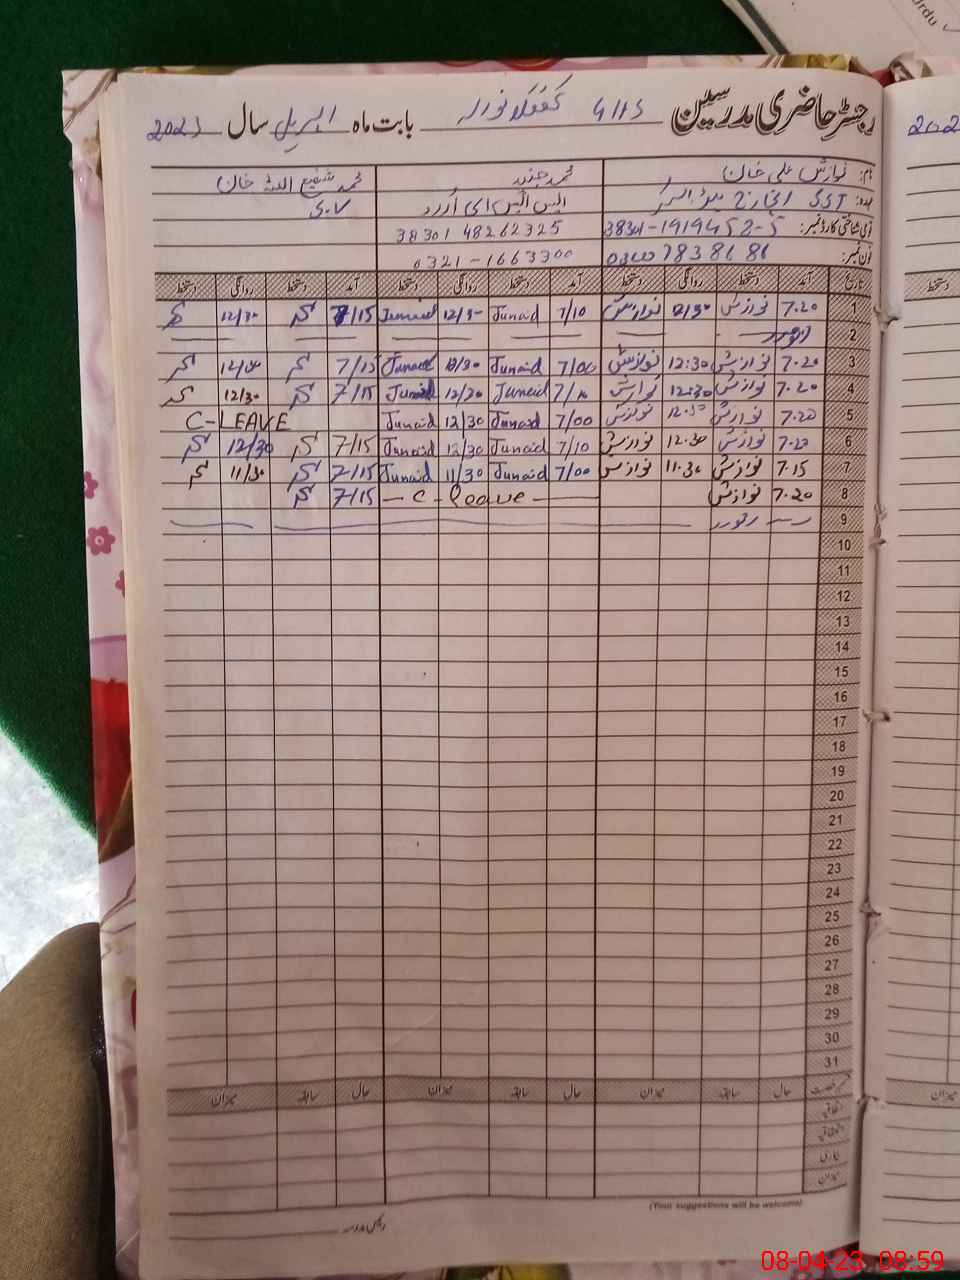 رجسٹر حاضری مدرسین GHS بابت ماہ اپریل سال 2023
نام: نوازش علی خان محمد جنید محمد شفیع اللہ خان
عہدہ: SST انچارج ایس ایس ای اُردو C.V
قومی شناختی کارڈ نمبر: 38301-1919452-5 38301 48262325
فون نمبر: 0321-1663300
تاریخ آمد دستخط روانگی دستخط آمد دستخط روانگی دستخط آمد دستخط روانگی دستخط
1 7.20 نوازش 12/30 نوازش 7/10 Junaid 12/30 Junaid 7/15 12/30
2 اتوار
3 7.20 نوازش 12:30 نوازش 7/00 Junaid 12/30 Junaid 7/15 12/30
4 7.20 نوازش 12:30 نوازش 7/10 Junaid 12/30 Junaid 7/15 12/30
5 7.20 نوازش 12.30 نوازش 7/00 Junaid 12/30 Junaid C-LEAVE
6 7.20 نوازش 12.30 نوازش 7/10 Junaid 12/30 Junaid 7/15 12/30
7 7.15 نوازش 11.30 نوازش 7/00 Junaid 11/30 Junaid 7/15 11/30
8 7.20 نوازش — C - leave — 7/15
9
10
11
12
13
14
15
16
17
18
19
20
21
22
23
24
25
26
27
28
29
30
31
رخصت حال سابقہ میزان حال سابقہ میزان حال سابقہ میزان
اتفاقیہ
استحقاقیہ
بیماری
میزان
(Your suggestions will be welcome)
رئیس مدرسہ
Urdu
202
دستخط
میزان
08-04-23 08:59